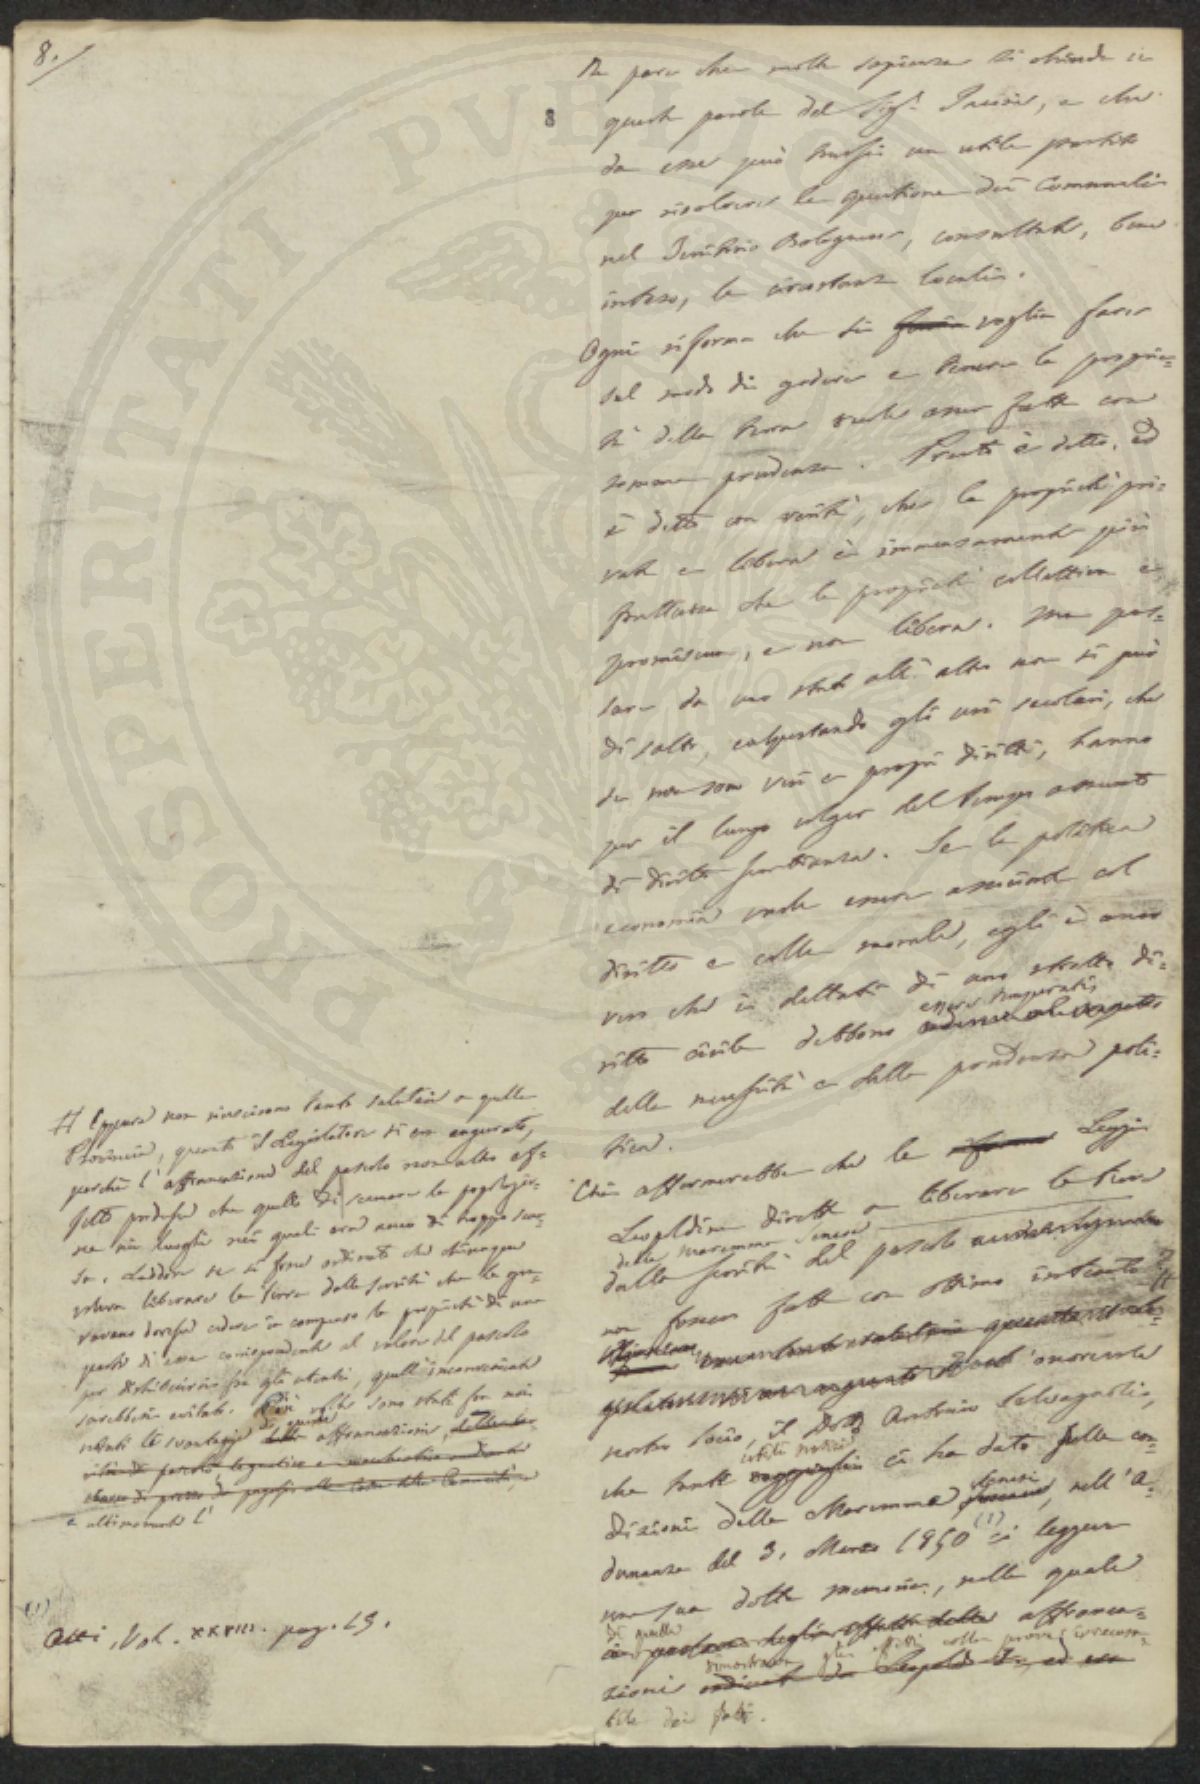 8.
8
Me pare che molta sapienza si chiuda in
queste parole del Sig.r, e che
da esse può trarsi un utile partito
per risolvere la questione dei Comunali
nel Territorio Bolognese, consultate, bene
inteso, le circostanze locali.
Ogni riforma che si voglia fare
sul modo di godere e tenere la proprie=
tà della terra vuole esser fatta con
somma prudenza. Presto è detto, ed
è detto con verità, che la proprietà pri=
vata e libera è immensamente più
fruttuosa che la proprietà collettiva e
promiscua, e non libera. Ma pas=
sare da uno stato all'altro non si può
di salto, calpestando gli usi secolari, che
se non sono veri e propri diritti, hanno
per il lungo volger del tempo assunto
di diritto sembianza. Se la politica
economia vuole essere associata al
diritto e colla morale, egli è anco
vero che i dettati di uno stretto di=
ritto civile debbono essere temperati
dalla necessità e dalla prudenza poli=
tica.
Chi affermerebbe che le Leggi
Leopoldine dirette a liberare le terre
della Maremma Senese
dalla servitù del pascolo
non fossero fatte con ottimo intento? #
nostro Socio, il Dott. Antonio Salvagnoli,
che tante utili notizie ci ha dato sulle con=
dizioni della Maremma Senese, nell'A=
dunanza del 3. Marzo 1850 (1) ci leggeva
una sua dotta memoria, nella quale
di quelle affranca=
zioni dimostrava gli effetti colla prova irrecusa=
bile dei fatti.
# Eppure non riuscirono tanto salutari a quella
Provincia, quanto il Legislatore si era augurato,
perchè l'affrancazione del pascolo non altro ef=
fetto produsse che quello di scemare la popolazio=
ne nei luoghi nei quali era anco di troppo scar=
sa. Laddove se si fosse ordinato che chiunque
voleva liberare la terra dalla servitù che la gra=
vavano dovesse cedere in compenso la proprietà di una
parte di essa corrispondente al valore del pascolo
per distribuirsi fra gli utenti, quell'inconveniente
sarebbesi evitato. Più volte sono stati fra noi
notati li svantaggi di queste affrancazioni,
e ultimamente l'
(1)
Atti, Vol. XXVIII. pag. 15.